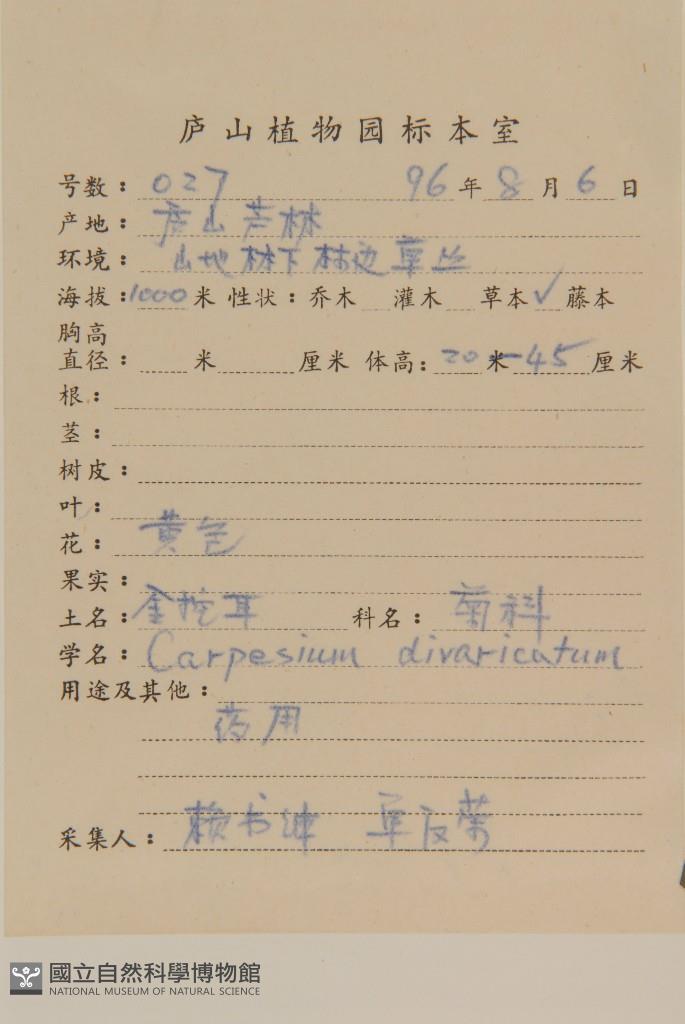 庐山植物园标本室
号数：027 96年8月6日
产地：庐山芦林
环境：山地林下林边草丛
海拔：1000米 性状：乔木 灌木 草本✓藤本
胸高
直径： 米 厘米 体高：20米-45厘米
根：
茎：
树皮：
叶：
花：黄色
果实：
土名：金挖耳 科名：菊科
学名：Carpesium divaricatum
用途及其他：
药用
采集人：赖书绅
國立自然科學博物館
NATIONAL MUSEUM OF NATURAL SCIENCE